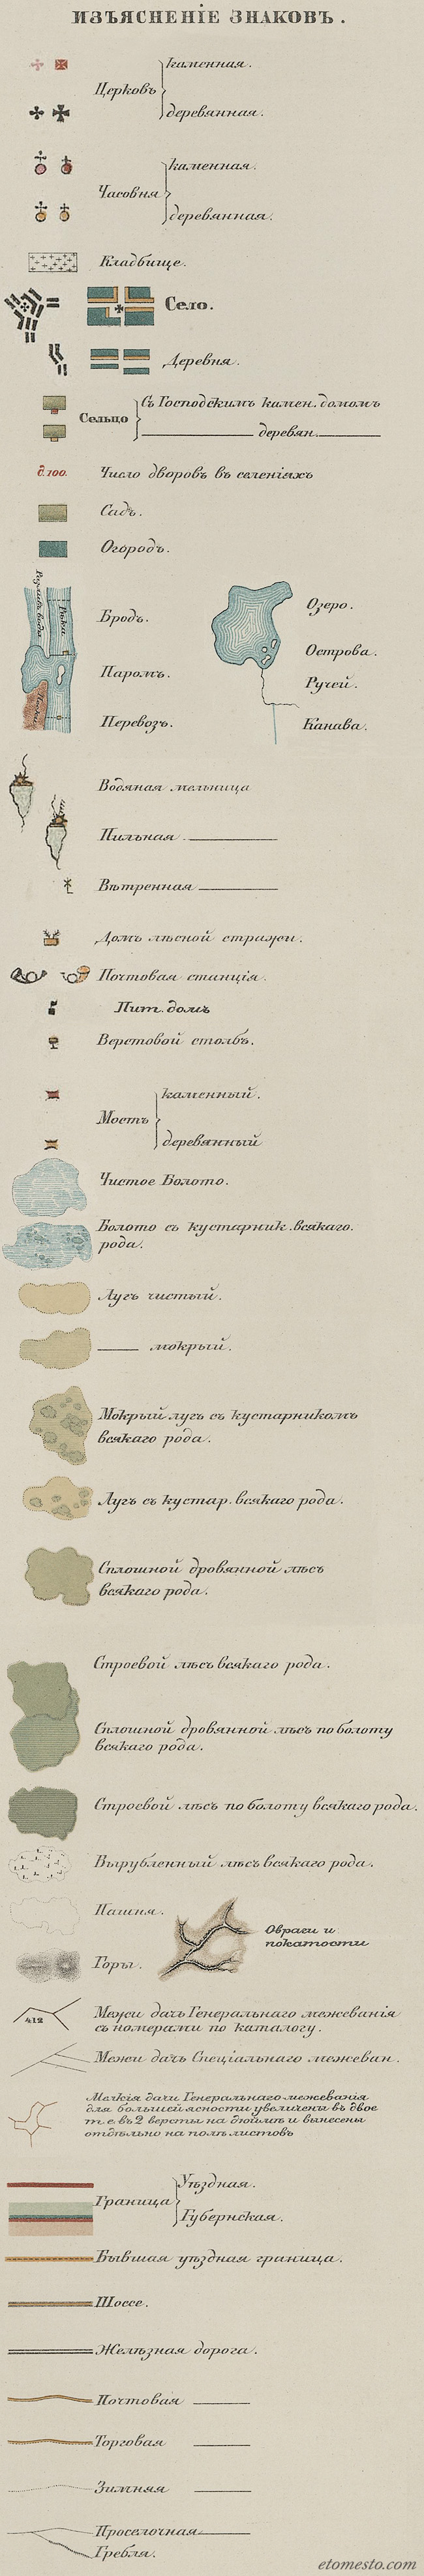 ИЗЪЯСНЕНІЕ ЗНАКОВЪ.
Церковь
каменная.
деревянная.
Часовня
каменная.
деревянная.
Кладбище.
Село.
Деревня.
Сельцо
Съ Господскимъ камен. домомъ
деревян.
д. 100.
Число дворовъ въ селеніяхъ
Садъ.
Огородъ.
Рѣка
Бродъ.
Паромъ.
Перевозъ.
Озеро.
Острова.
Ручей.
Канава.
Водяная мельница
Пильная
Вѣтренная
Домъ лѣсной стражи.
Почтовая станція.
Пит. домъ
Верстовой столбъ.
Мостъ
каменный.
деревянный
Чистое Болото.
Болото съ кустарник. всякаго.
рода.
Лугъ чистый.
мокрый.
Мокрый лугъ съ кустарникомъ
всякаго рода.
Лугъ съ кустар. всякаго рода.
Сплошной дровянной лѣсъ
всякаго рода.
Строевой лѣсъ всякаго рода.
Сплошной дровянной лѣсъ по болоту
всякаго рода.
Строевой лѣсъ по болоту всякаго рода.
Вырубленный лѣсъ всякаго рода.
Пашня.
Овраги и
покатости
Горы.
412
Межи дачъ Генеральнаго межеванія
съ номерами по каталогу.
Межи дачъ Спеціальнаго межеван.
Мелкія дачи Генеральнаго межеванія
для большей ясности увеличены въ двое
т. е. въ 2 версты на дюймъ и вынесены
отдѣльно на поляхъ листовъ
Граница
Уѣздная.
Губернская.
Бывшая уѣздная граница.
Шоссе.
Желѣзная дорога.
Почтовая
Торговая
Зимняя
Проселочная
Гребля.
etomesto.com